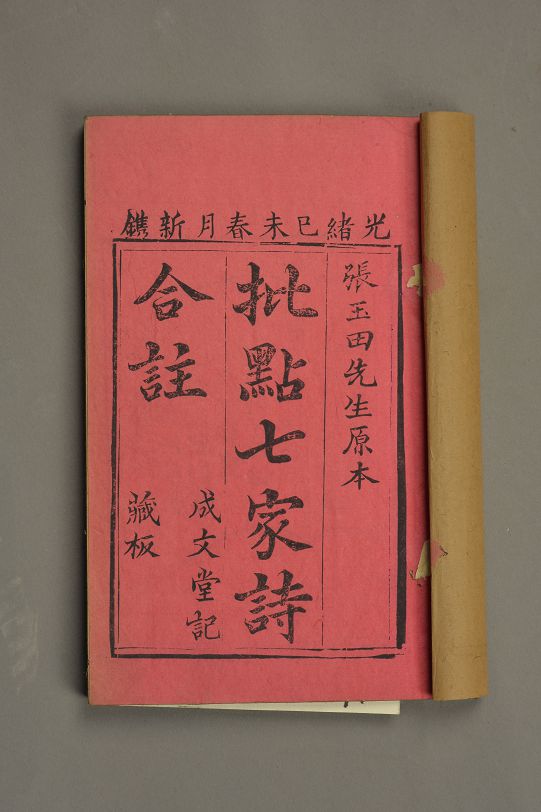 光緒巳未春月新鐫
張玉田先生原本
批點七家詩
合註
成文堂記
藏板